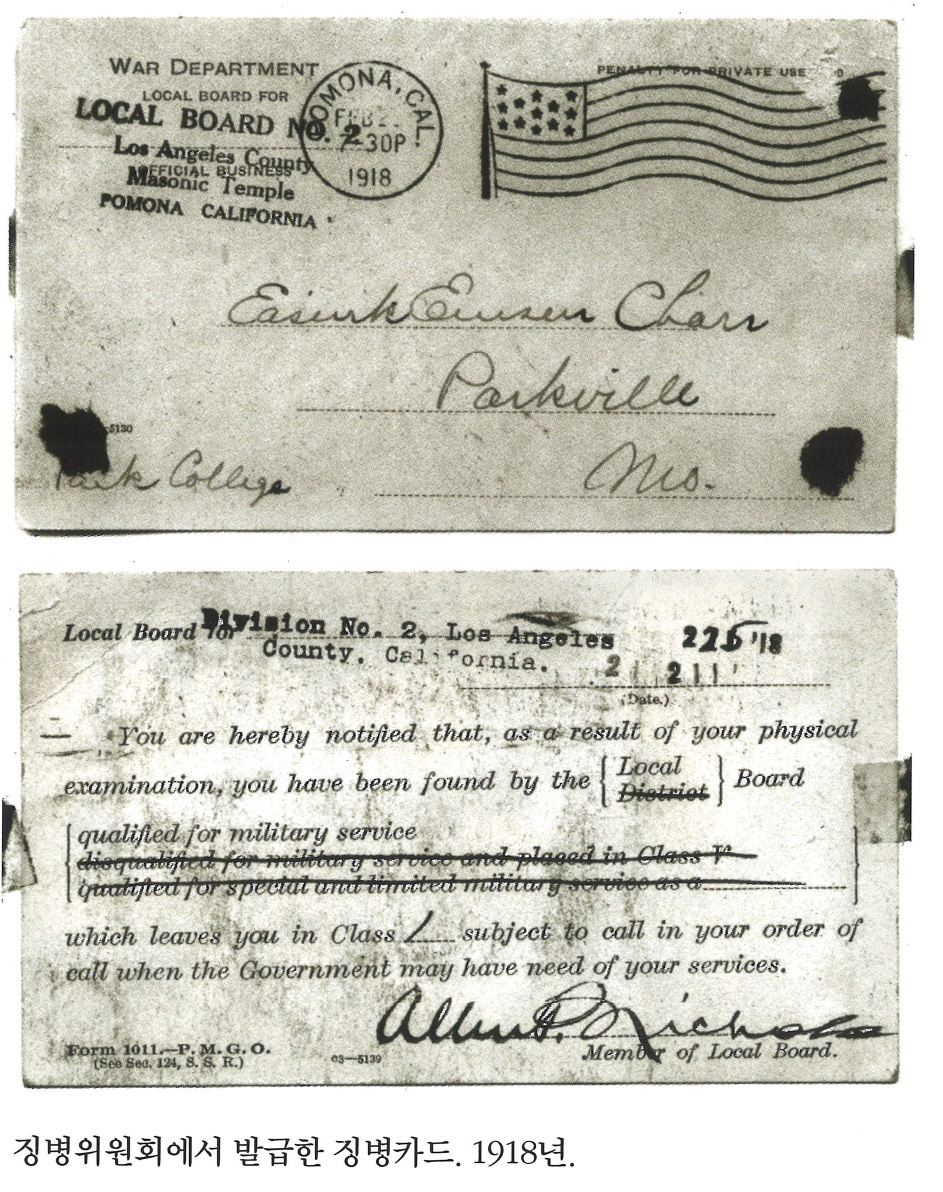 WAR DEPARTMENT
LOCAL BOARD FOR
LOCAL BOARD NO. 2
Los Angeles County
OFFICIAL BUSINESS
Masonic Temple
POMONA CALIFORNIA
POMONA, CAL.
FEB 2
7-30P
1918
PENALTY FOR PRIVATE USE
Easurk Emsen Charr
Parkville
Mo.
-5130
Park College
Local Board for Division No. 2, Los Angeles
County, California.
225 '18
2 211
(Date.)
You are hereby notified that, as a result of your physical
examination, you have been found by the { Local District } Board
qualified for military service
disqualified for military service and placed in Class V
qualified for special and limited military service as a
which leaves you in Class I subject to call in your order of
call when the Government may have need of your services.
Form 1011.—P. M. G. O.
(See Sec. 124, S. S. R.)
03—5139
Member of Local Board.
징병위원회에서 발급한 징병카드. 1918년.